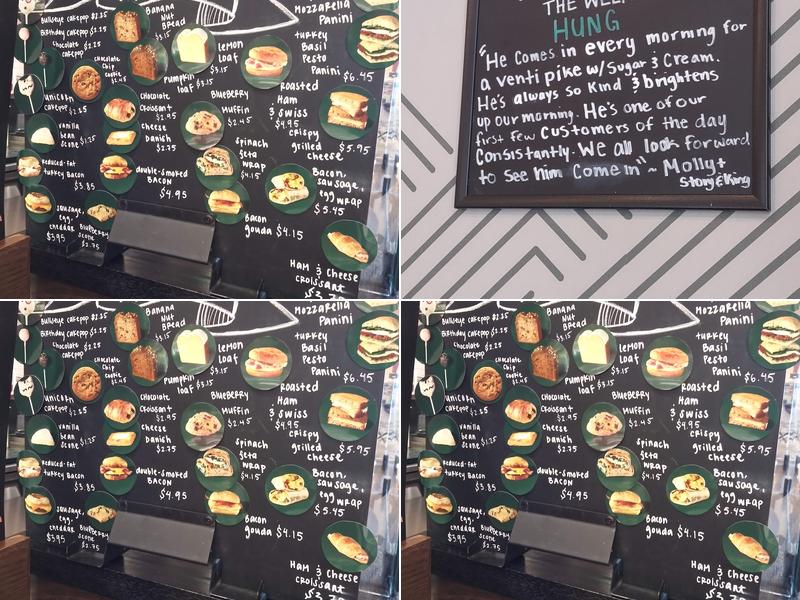 Bullseye cakepop $2.25
Birthday cakepop $2.25
Chocolate $2.25
cakepop
Banana
Nut
Bread
$3.15
chocolate
chip
cookie
$2.45
pumpkin
loaf $3.15
lemon
loaf
$3.15
Mozzarella
Panini
turkey
Basil
Pesto
Panini $6.45
unicorn
cakepop $2.25
chocolate
croissant
$2.95
Blueberry
Muffin
$2.45
Roasted
Ham
& Swiss
$4.95
vanilla
bean
scone $1.25
cheese
Danish
$2.75
spinach
feta
wrap
$4.15
crispy
grilled $5.95
cheese
Reduced-fat
turkey Bacon
$3.85
double-smoked
BACON
$4.95
Bacon,
sausage,
egg wrap
$5.45
sausage,
egg,
cheddar
$3.95
Blueberry
scone
$2.75
Bacon
gouda $4.15
Ham & Cheese
croissant
THE WEEK
HUNG
"He comes in every morning for
a venti pike w/ sugar & cream.
He's always so kind & brightens
up our morning. He's one of our
first few customers of the day
consistantly. We all look forward
to see him come in" ~ Molly +
Story & King
Bullseye cakepop $2.25
Birthday cakepop $2.25
Chocolate $2.25
cakepop
Banana
Nut
Bread
$3.15
chocolate
chip
cookie
$2.45
pumpkin
loaf $3.15
lemon
loaf
$3.15
Mozzarella
Panini
turkey
Basil
Pesto
Panini $6.45
unicorn
cakepop $2.25
chocolate
croissant
$2.95
Blueberry
Muffin
$2.45
Roasted
Ham
& Swiss
$4.95
vanilla
bean
scone $1.25
cheese
Danish
$2.75
spinach
feta
wrap
$4.15
crispy
grilled $5.95
cheese
Reduced-fat
turkey Bacon
$3.85
double-smoked
BACON
$4.95
Bacon,
sausage,
egg wrap
$5.45
sausage,
egg,
cheddar
$3.95
Blueberry
scone
$2.75
Bacon
gouda $4.15
Ham & Cheese
croissant
Bullseye cakepop $2.25
Birthday cakepop $2.25
Chocolate $2.25
cakepop
Banana
Nut
Bread
$3.15
chocolate
chip
cookie
$2.45
pumpkin
loaf $3.15
lemon
loaf
$3.15
Mozzarella
Panini
turkey
Basil
Pesto
Panini $6.45
unicorn
cakepop $2.25
chocolate
croissant
$2.95
Blueberry
Muffin
$2.45
Roasted
Ham
& Swiss
$4.95
vanilla
bean
scone $1.25
cheese
Danish
$2.75
spinach
feta
wrap
$4.15
crispy
grilled $5.95
cheese
Reduced-fat
turkey Bacon
$3.85
double-smoked
BACON
$4.95
Bacon,
sausage,
egg wrap
$5.45
sausage,
egg,
cheddar
$3.95
Blueberry
scone
$2.75
Bacon
gouda $4.15
Ham & Cheese
croissant